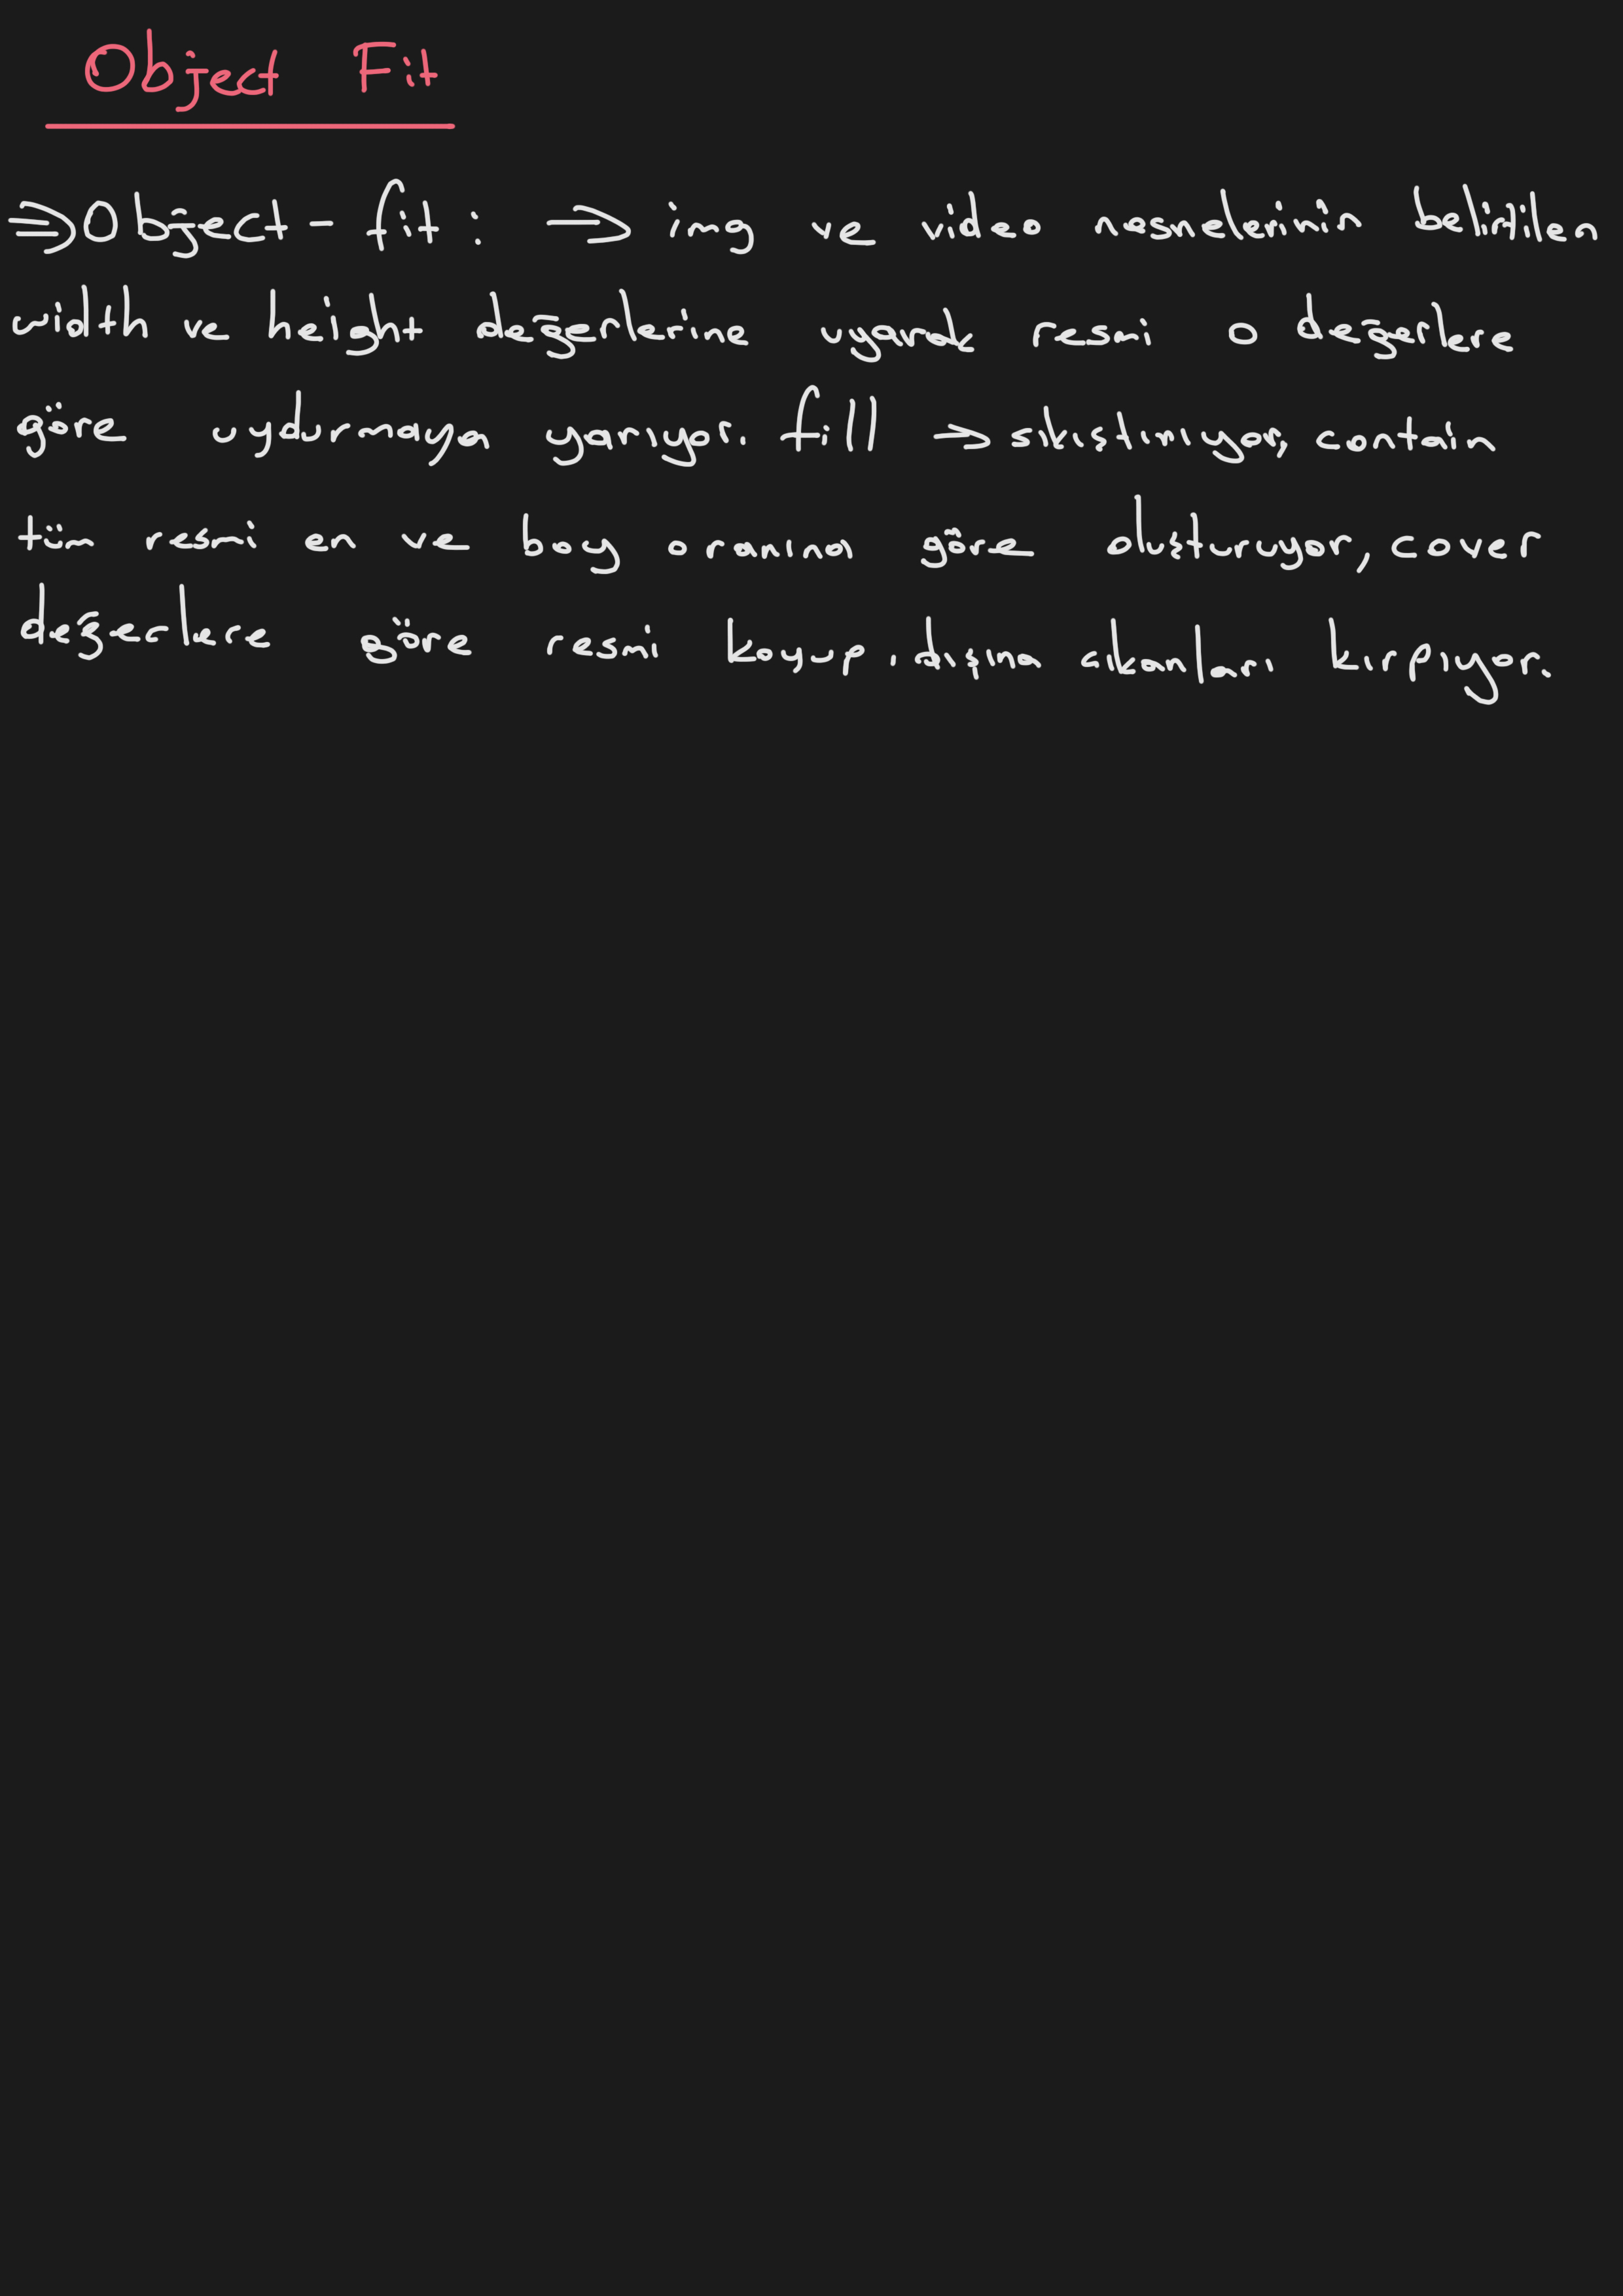 Object Fit
⇒ Object-fit: ⇒ img ve video nesnelerinin belirtilen
width ve height değerlerine uyarak resmi o değerlere
göre uydurmaya yarıyor. fill → sıkıştırıyor, contain
tüm resmi en ve boy oranına göre dolduruyor, cover
değerlere göre resmi koyup, dışına çıkanları kırpıyor.